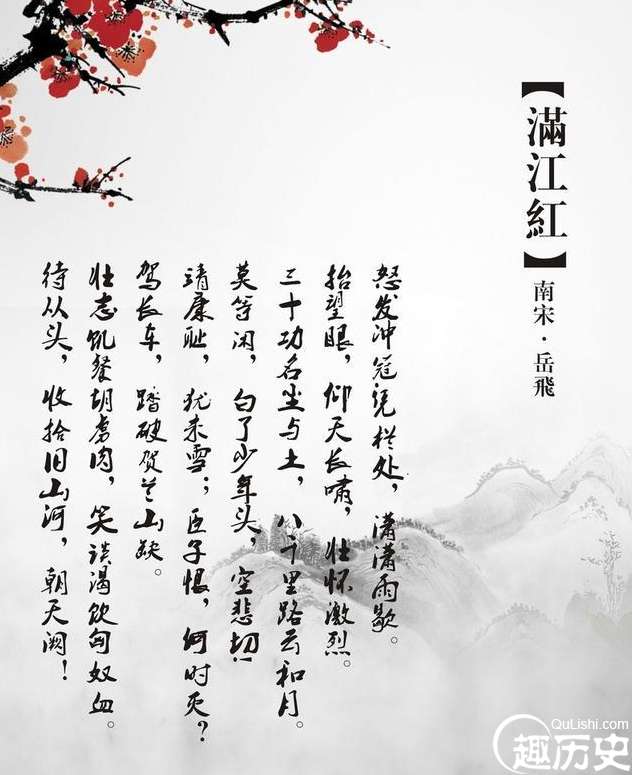 【滿江紅】
南宋·岳飛
怒发冲冠凭栏处，潇潇雨歇。
抬望眼，仰天长啸，壮怀激烈。
三十功名尘与土，八千里路云和月。
莫等闲，白了少年头，空悲切！
靖康耻，犹未雪；臣子恨，何时灭？
驾长车，踏破贺兰山缺。
壮志饥餐胡虏肉，笑谈渴饮匈奴血。
待从头，收拾旧山河，朝天阙！
QuLishi.com
趣历史